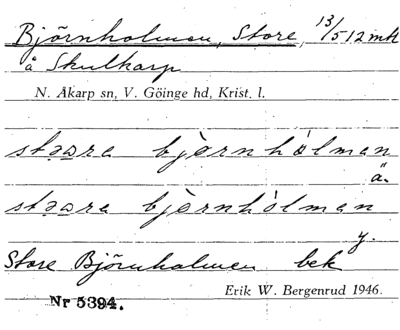 Björnholmen, Store, 13/5 12 mk
å Skulkarp
N. Åkarp sn, V. Göinge hd, Krist. l.
stəɒrə bjørnhòlmən
ä.
stəɒrə bjørnhòlmən
y.
Store Björnholmen bek
Erik W. Bergenrud 1946.
Nr 5394.